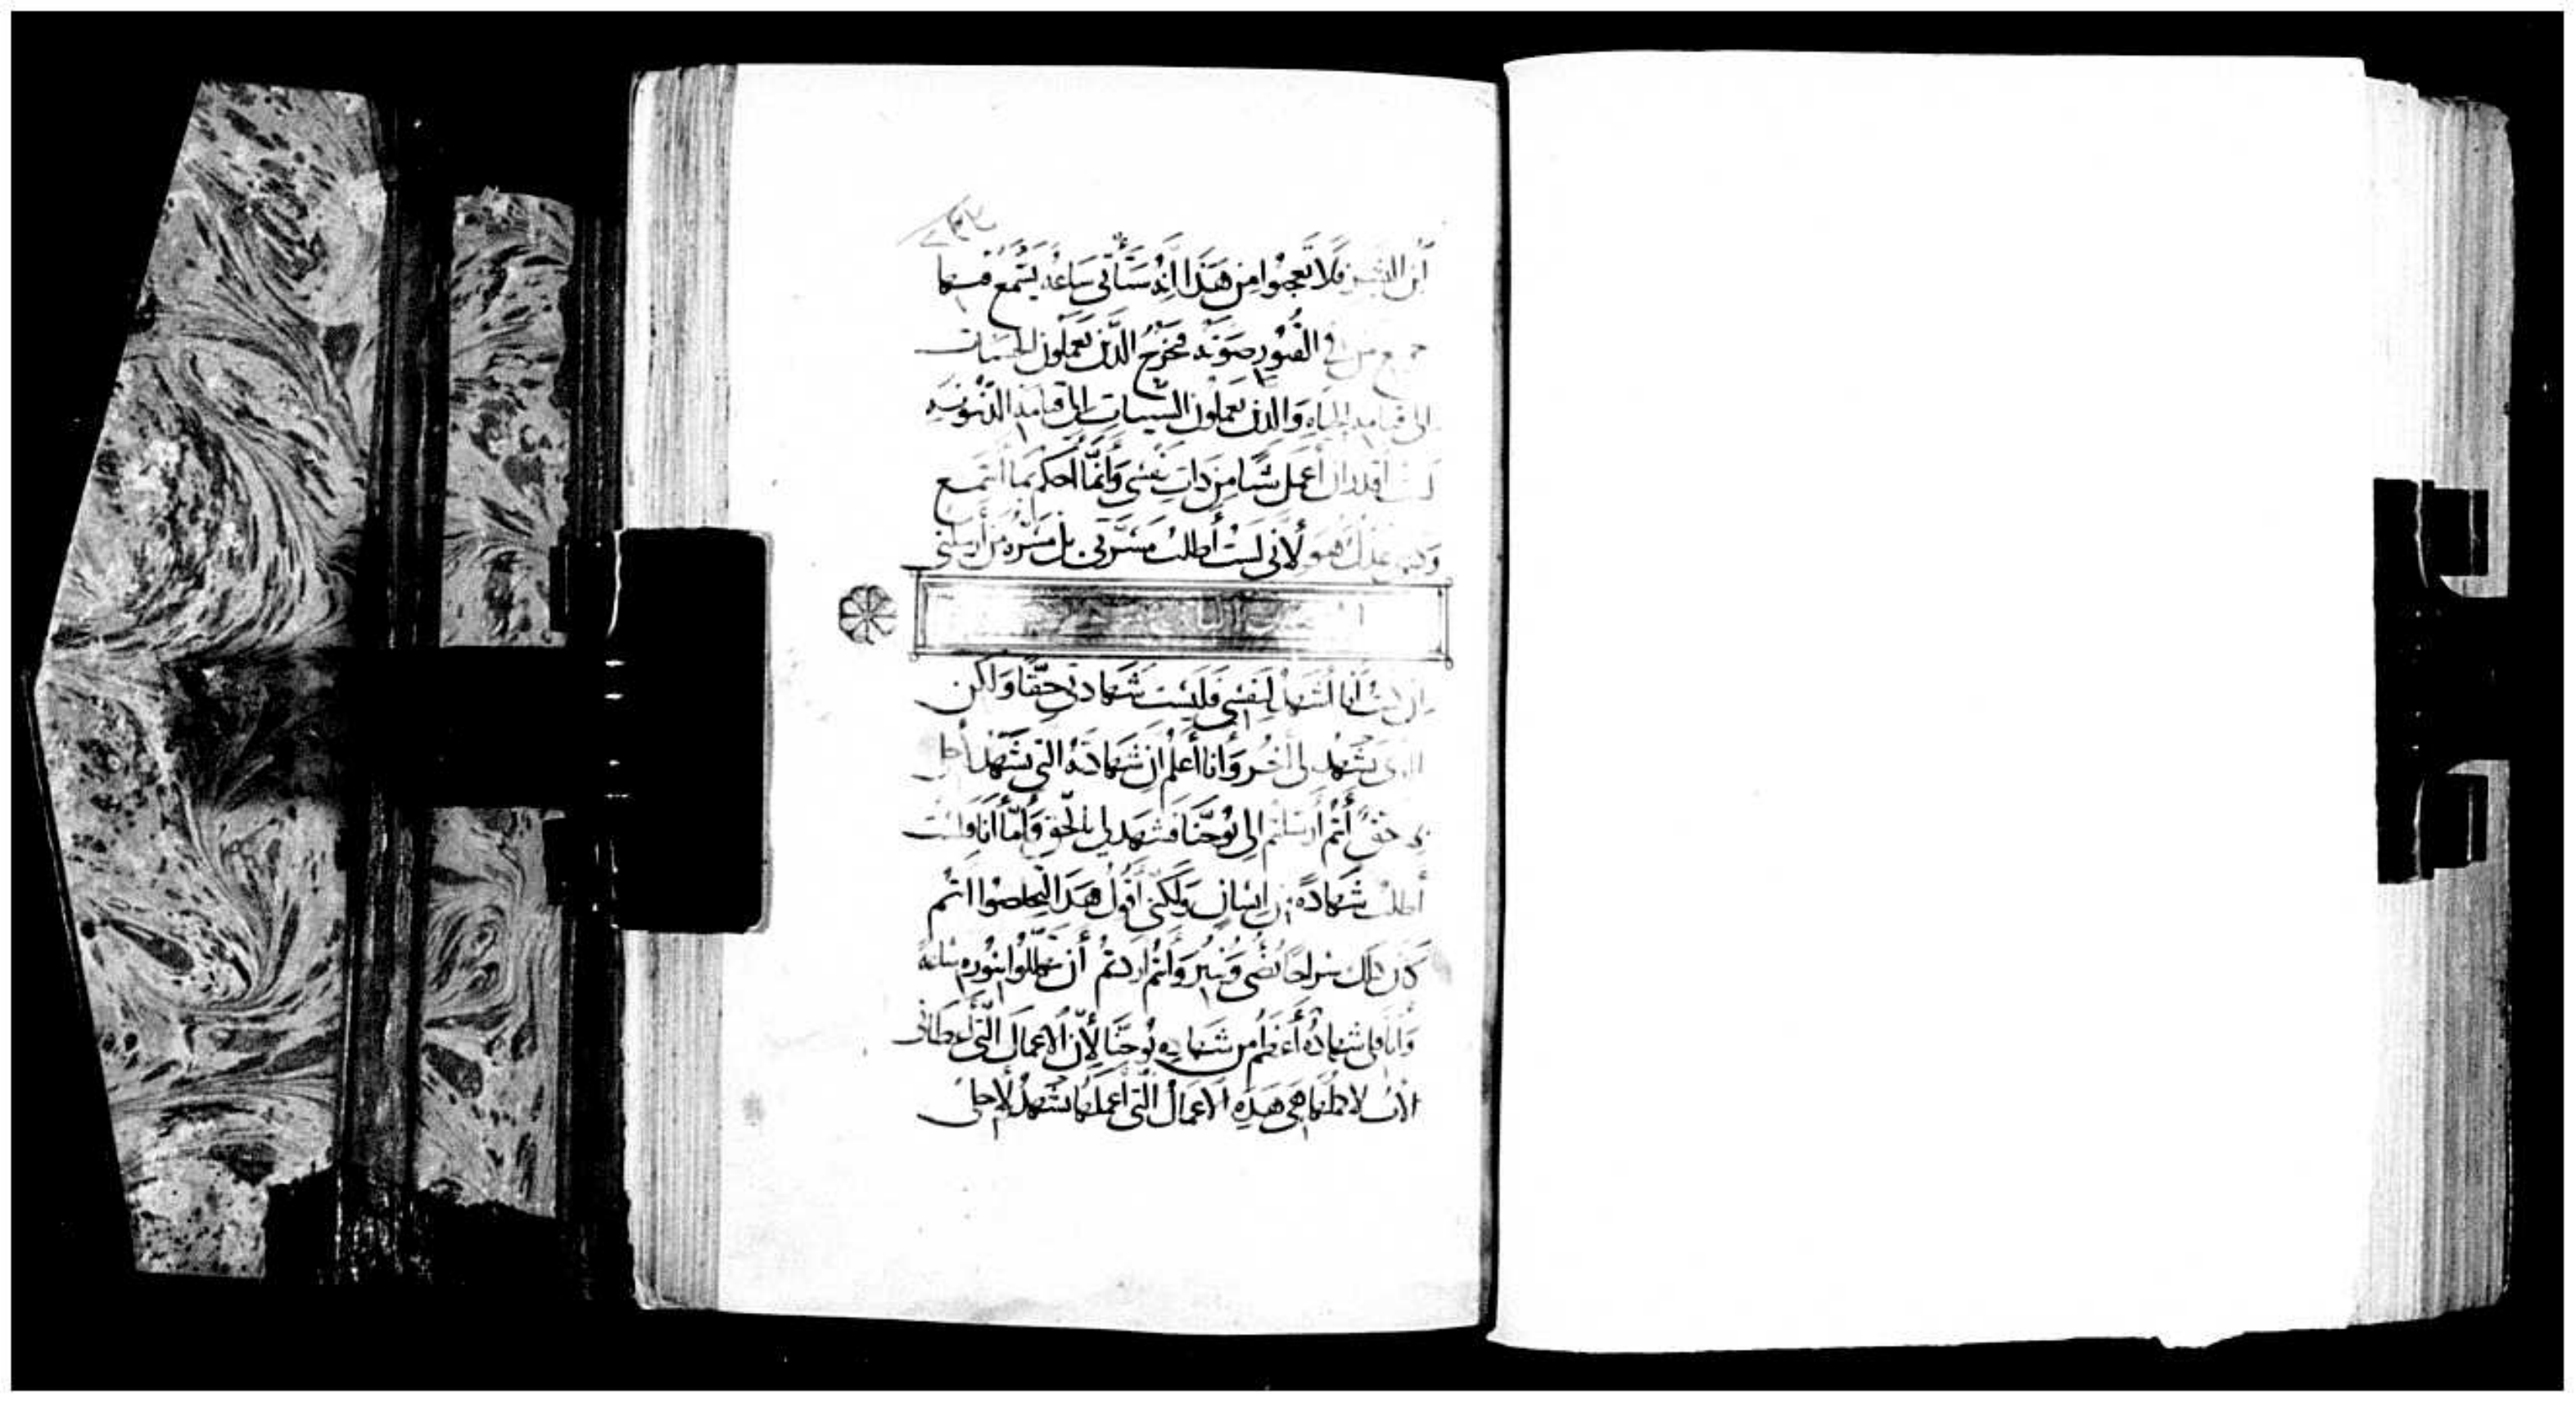 ابن البشر فلا تعجبوا من هذا انه ستأتي ساعه يسمع فيها
جميع من في القبور صوته فيخرج الذين يعملون الحسنات
الى قيامه الحياه والذين يعملون السيات الى قيامه الدينونه
لست اقدر ان أعمل شيا من ذات نفسي وانما أحكم بما اسمع
عدل هو لأني لست أطلب مسرتي بل مسره من أرسلني
ان كنت أنا اشهد لنفسي فليست شهادتي حقا ولكن
الذي يشهد لي أخر وأنا أعلم ان شهادته التي يشهد لأجلي
حق أنتم أرسلتم الى يوحنا فشهد لي بالحق وأما أنا فلست
أطلب شهادة من إنسان ولكني أقول هذا لتخلصوا انتم
كان ذلك سراجا يضى وينير وأنتم اردتم أن تتهللوا بنوره ساعة
وأنا فلي شهادة أعظم من شهاده يوحنا لأن الاعمال التي أعطاني
الاب لاكملها هي هذه الاعمال التي أعملها تشهد لأجلي